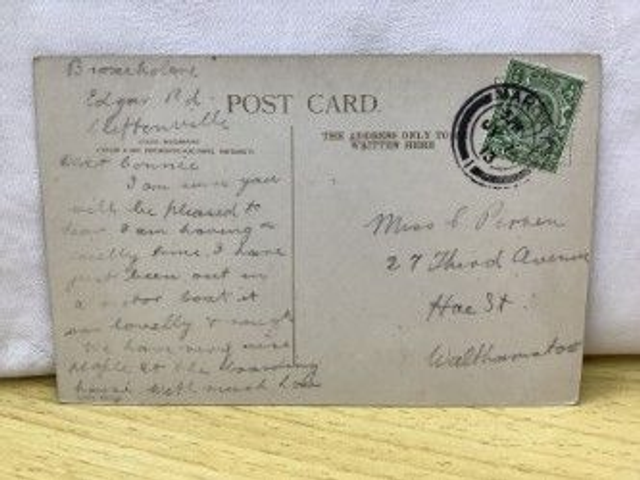 Edgar Rd.
Cliftonville
POST CARD.
THE ADDRESS ONLY TO
WRITTEN HERE
MAR
Dear Connie
I am sure you
will be pleased to
hear I am having a
lovelly time I have
just been out in
a motor boat it
was lovelly & rough
We have very nice
people at the Boarding
house with much love
Miss C
27 Third Avenue
Hoe St.
Walthamstow